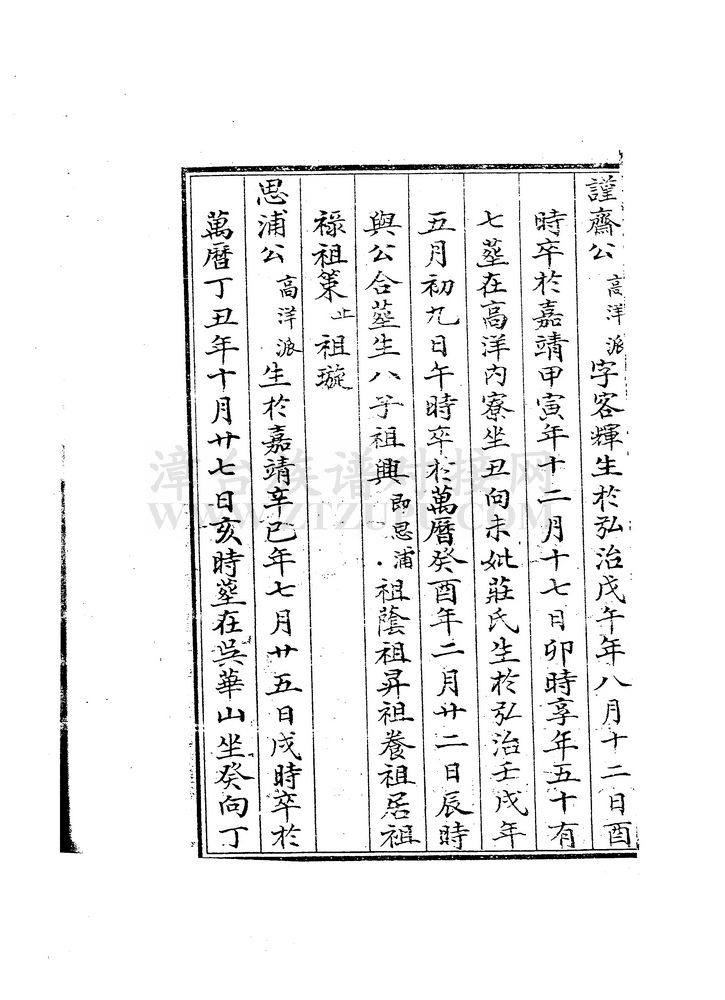 謹齋公高洋派字客輝生於弘治戊午年八月十二日酉
時卒於嘉靖甲寅年十二月十七日卯時享年五十有
七塟在高洋內寮坐丑向未妣莊氏生於弘治壬戌年
五月初九日午時卒於萬曆癸酉年二月廿二日辰時
與公合塟生八子祖興即思浦.祖蔭祖昇祖養祖居祖
祿祖策止祖璇
思浦公高洋派生於嘉靖辛巳年七月廿五日戌時卒於
萬曆丁丑年十月廿七日亥時塟在吳華山坐癸向丁
漳台族谱对接网
WWW.ZTZUPU.COM